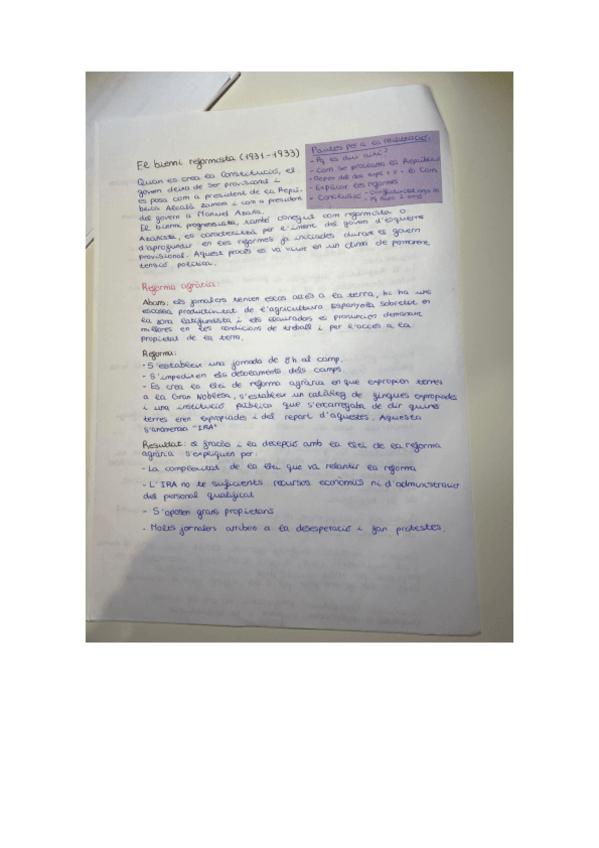 El bienni reformista (1931-1933)
Quan es crea la Constitució, el
govern deixa de ser provisional i
es posa com a president de la Repú-
blica Alcalà Zamora i com a president
del govern a Manuel Azaña.
El bienni progressista, també conegut com reformista o
Azañista, es caracteritzà per l'intent del govern d'esquerra
d'aprofundir en les reformes ja iniciades durant el govern
provisional. Aquest procés es va viure en un clima de permanent
tensió política.
Pautes per a la redacció:
- Pq es diu així?
- Com se proclama la República
- Explicar les reformes
- Conclusió -
Reforma agrària:
Abans: els jornalers tenien escàs accés a la terra, hi ha una
escassa productivitat de l'agricultura Espanyola sobretot en
la zona latifundista i els llauradors es pronuncien demanant
millores en les condicions de treball i per l'accés a la
propietat de la terra.
Reforma:
- S'estableix una jornada de 8h al camp.
- S'impediren els desnonaments dels camps.
- Es crea la Llei de reforma agrària en que expropien terres
a la Gran Noblesa, s'estableix un catàleg de finques expropiades
i una institució pública que s'encarregaba de dir quines
terres eren expropiades i del repart d'aquestes. Aquesta
s'anomenà "IRA"
Resultat: el fracàs i la decepció amb la Llei de la reforma
agrària s'expliquen per:
- La complexitat de la Llei que va relantir la reforma
- L'IRA no te suficients recursos econòmics ni d'administració
del personal qualificat
- S'oposen grans propietaris
- Molts jornalers arriben a la desesperació i fan protestes.